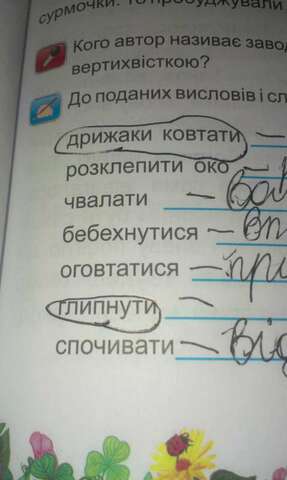 сурмочки. То пробуджували
Кого автор називає заво
вертихвісткою?
До поданих висловів і сл
дрижаки ковтати —
розклепити око —
чвалати —
бебехнутися — вп
оговтатися — при
глипнути —
спочивати — від